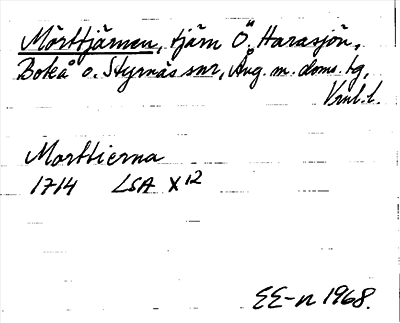 Mörttjärnen, tjärn Ö. Harasjön,
Boteå o. Styrnäs snr, Ång. m. doms. tg,
Vrnl. l.
Morttierna
1714 LSA X12
EE-n 1968.